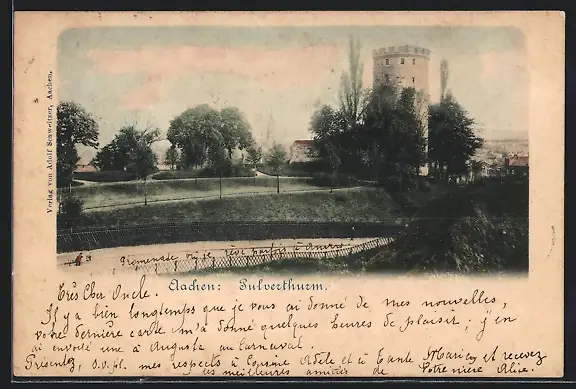 Verlag von Adolf Schweitzer, Aachen.
promenade où je rêve parfois à
Aachen: Pulverthurm.
Très Cher Oncle.
Il y a bien longtemps que je vous ai donné de mes nouvelles,
votre dernière carte m'a donné quelques heures de plaisir; j'en
ai envoyé une à Auguste au Carnaval.
Présentez, s.v.pl. mes respects à Cousine Adèle et à Tante et recevez
les meilleures amitiés de Votre nièce Alice.